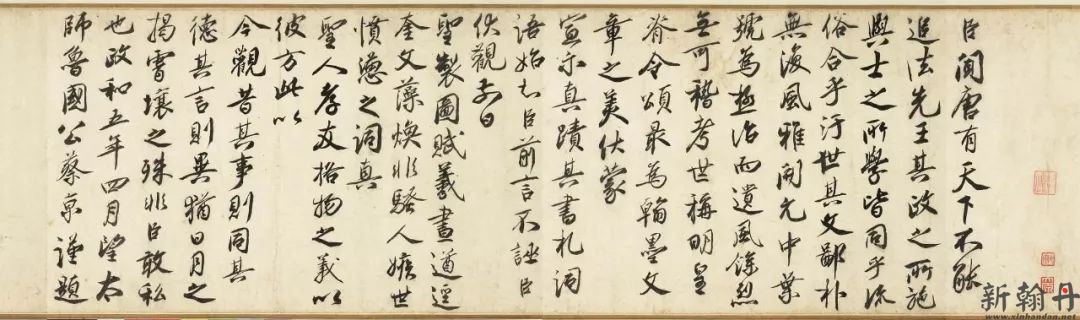 臣聞唐有天下不能
追法先王其政之所施
與士之所學皆同乎流
俗合乎汙世其文鄙朴
無復風雅開元中葉
號為極治而遺風餘烈
無可稽考世稱明皇
脊令頌最為翰墨文
章之美伏蒙
宣示真蹟其書札詞
語始知臣前言不誣臣
伏觀前日
聖製圖賦羲畫遒逕
奎文藻煥非騷人嫉世
憤懣之詞真
聖人孝友格物之義以
彼方此以
今觀昔其事則同其
德其言則異猶日月之
揭霄壤之殊非臣敢私
也政和五年四月望太
師魯國公蔡京謹題
新翰丹
www.xinhandan.net